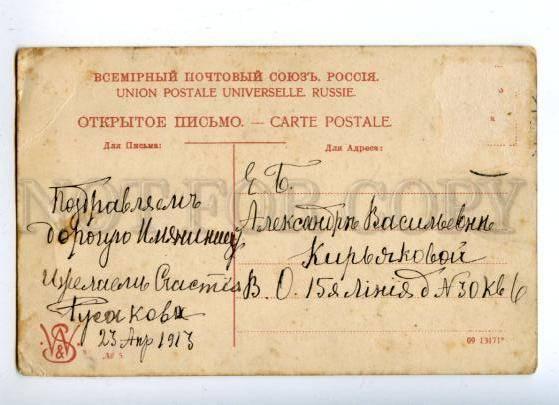 ВСЕМІРНЫЙ ПОЧТОВЫЙ СОЮЗЪ. РОССІЯ.
UNION POSTALE UNIVERSELLE. RUSSIE.
ОТКРЫТОЕ ПИСЬМО. — CARTE POSTALE.
Для Письма:
Для Адреса:
Поздравляемъ
дорогую Имянинницу
и желаемъ Счастія
Гусаковы
23 Апр 1913
Е. Б.
Александрѣ Васильевнѣ
Кирьяковой
В. О. 15я Линія д N 30 кв 6
NOT FOR COPY
№ 5
09 13171*